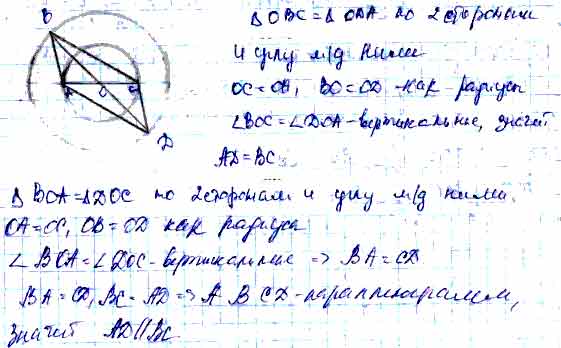 B
O
D
Δ OBC = Δ ODA по 2 сторонам
и углу м/д ними
OC = OA, BO = OD - как радиусы
∠BOC = ∠DOA - вертикальные, значит
AD = BC
Δ BOA = Δ DOC по 2 сторонам и углу м/д ними.
OA = OC, OB = OD как радиусы
∠ BOA = ∠ DOC - вертикальные => BA = CD
BA = CD, BC = AD => A B C D - параллелограмм,
значит AD || BC